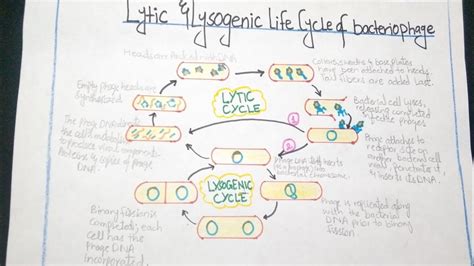 Lytic & Lysogenic Life Cycle of bacteriophage
Heads are packed with DNA
Collars, sheaths & base plates
have been attached to heads.
Tail fibers are added last.
Empty phage heads are
synthesized
LYTIC
CYCLE
Bacterial cell lyses,
releasing completed
infective phages
The phage DNA directs
the cell's metabolism
to produce viral components
proteins & copies of phage
DNA.
1
2
Phage attaches to
receptor site on
another bacterial cell
wall, penetrates it,
& inserts its DNA.
Phage DNA inserts
as a prophage into
bacterial chromosome.
LYSOGENIC
CYCLE
Binary fission is
completed; each
cell has the
Phage DNA
incorporated.
Phage is replicated along
with the bacterial
DNA prior to binary
fission.